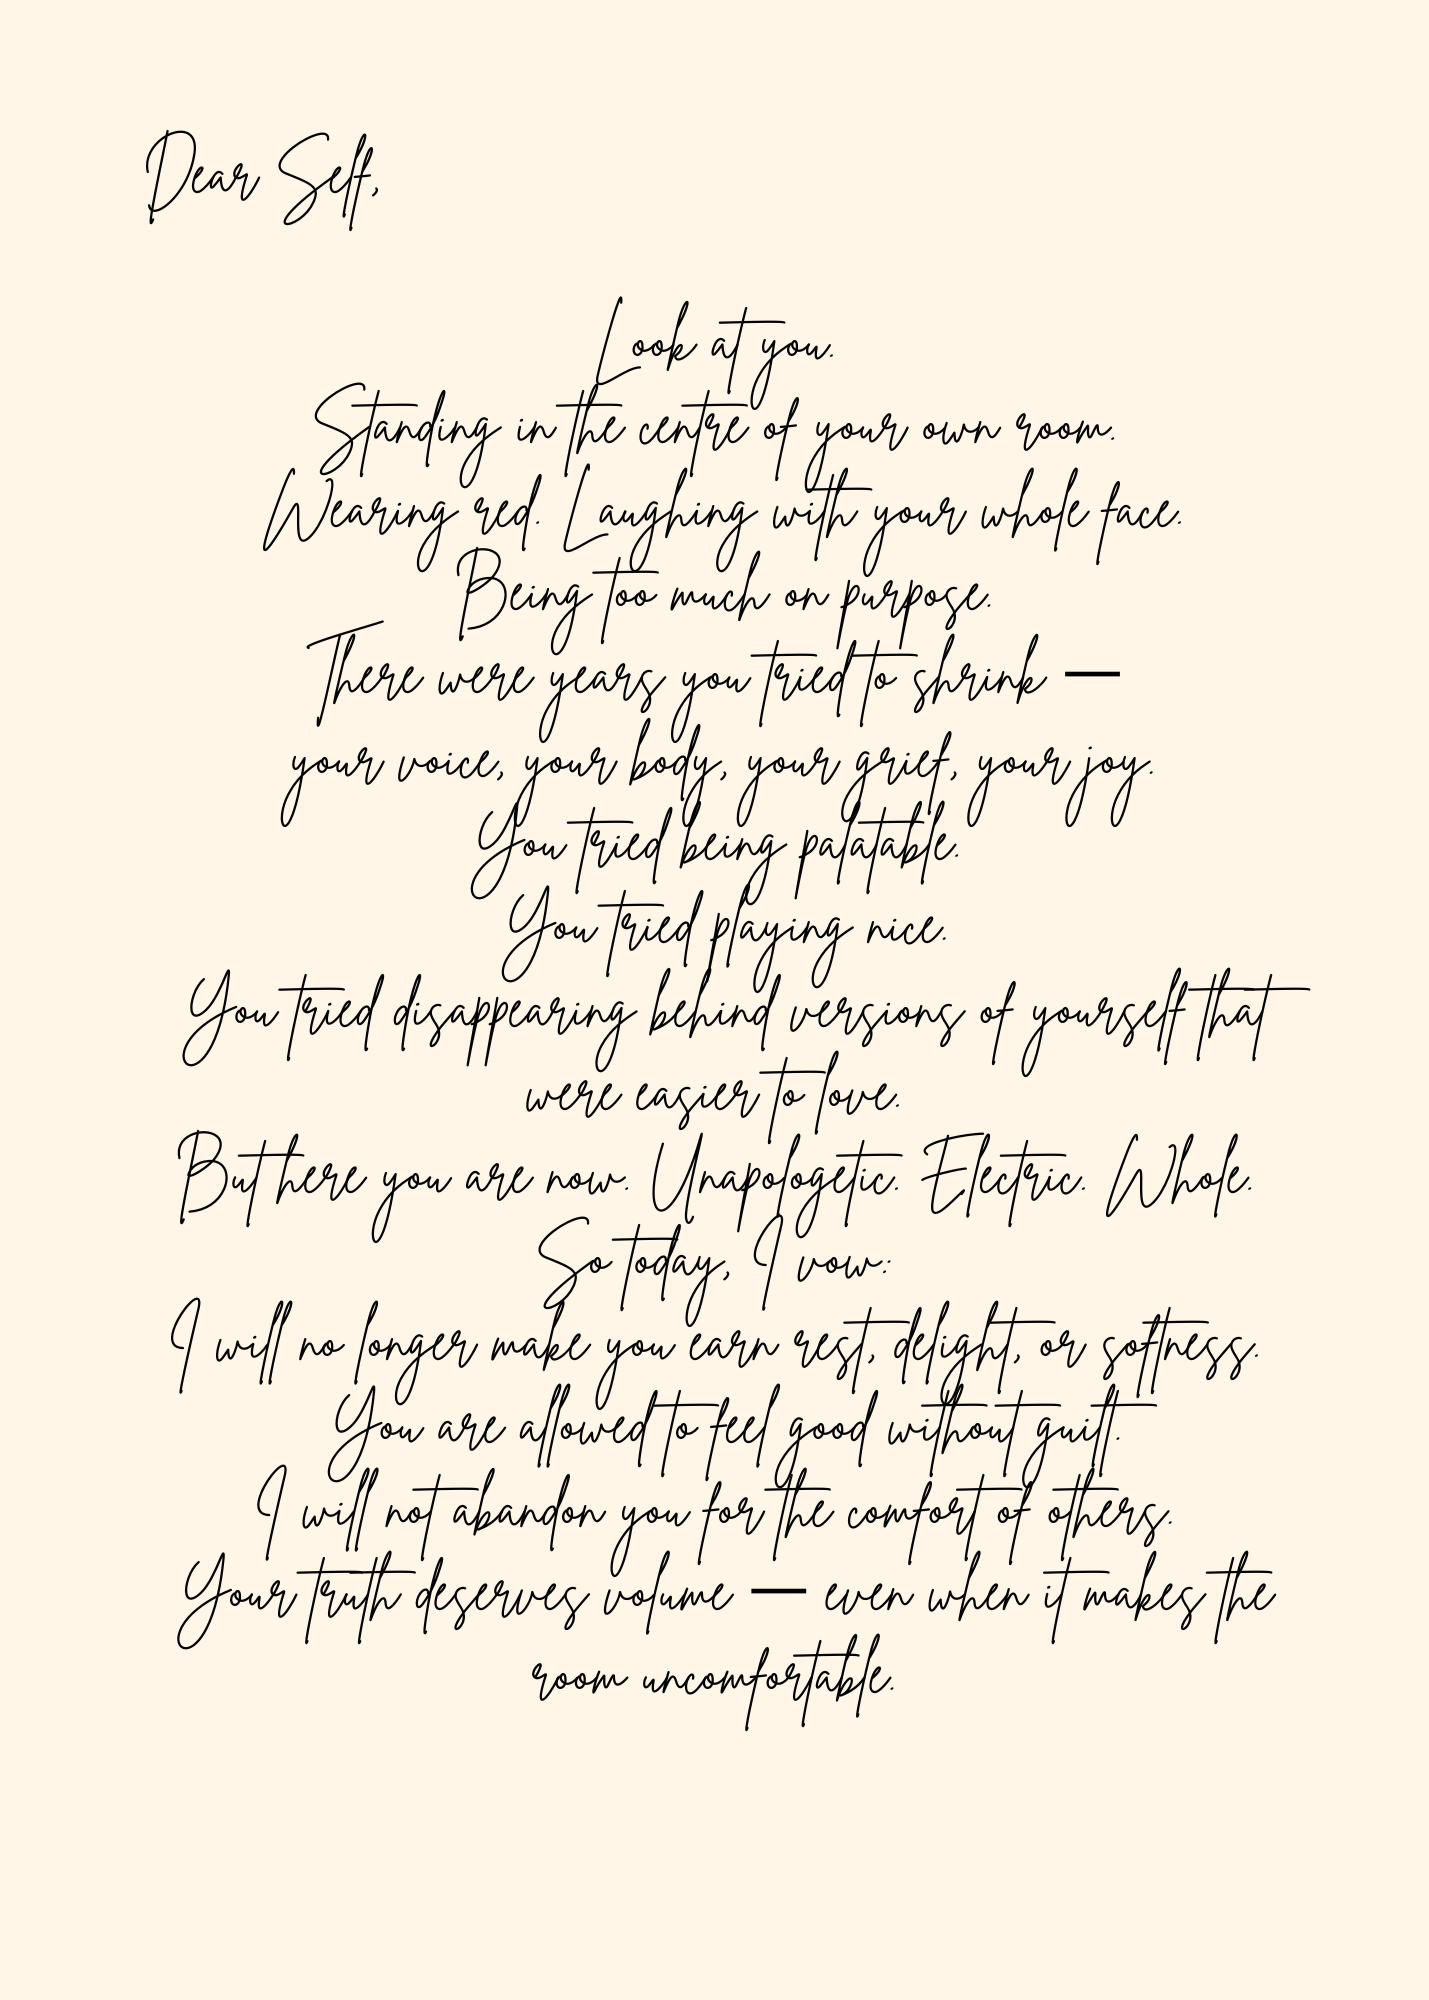 Dear Self,
Look at you.
Standing in the centre of your own room.
Wearing red. Laughing with your whole face.
Being too much on purpose.
There were years you tried to shrink —
your voice, your body, your grief, your joy.
You tried being palatable.
You tried playing nice.
You tried disappearing behind versions of yourself that
were easier to love.
But here you are now. Unapologetic. Electric. Whole.
So today, I vow:
I will no longer make you earn rest, delight, or softness.
You are allowed to feel good without guilt.
I will not abandon you for the comfort of others.
Your truth deserves volume — even when it makes the
room uncomfortable.